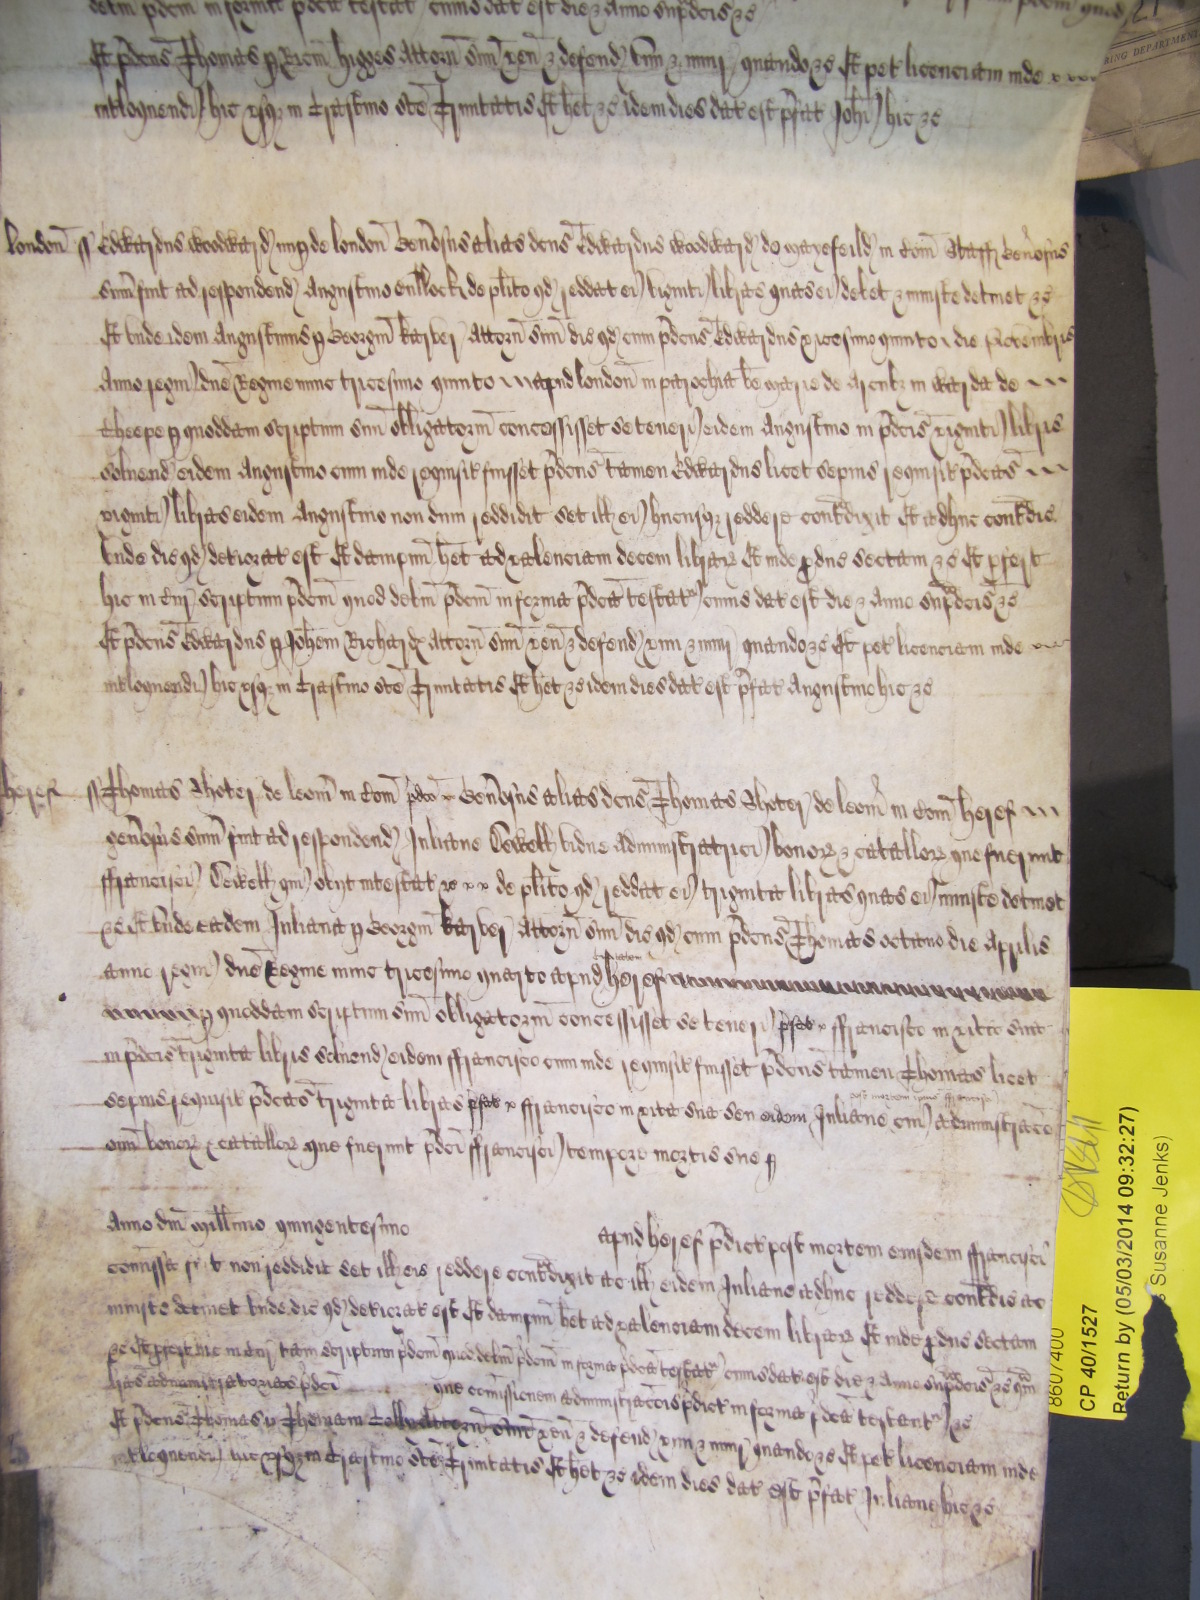 debm p̄dcm in forma p̄dca testat cuius dat est die & Anno sup̄dcis &c
Et p̄dcus Thomas p Ricm higges Attorn suu ven & defend vim & iniur quando &c Et pet licenciam inde
int̄loquendi hic usq in Crastino sc̄e Trinitatis Et het &c idem dies dat est p̄fat Joh̄i hic &c
london ss Edwardus woodward nup de london Gen̄osus alias dcus Edwardus woodward de in Com Gen̄osus
sum̄ fuit ad respondend Augustino de pl̄ito qd reddat ei viginti libras quas ei debet & iniuste detinet &c
Et unde idem Augustinus p Georgiu Attorn suu dic qd cum p̄dcus Edwardus vicesimo quinto die
Anno regni dn̄e Regine nunc tricesimo quinto apud london in parochia b̄e marie de Arcub in warda de
Cheepe p quoddam scriptum suu obligatoriu concessisset se teneri eidem Augustino in p̄dcis viginti libris
solvend eidem Augustino cum inde requisit fuisset p̄dcus tamen Edwardus licet sepius requisit p̄dcas
viginti libras eidem Augustino non dum reddidit set ill ei hucusq reddere cont̄dixit Et adhuc cont̄dic
Unde dic qd det̄iorat est Et dampnu h̄et ad valenciam decem librar Et inde p̄duc sectam &c Et p̄fert
hic in Cur scriptum p̄dcm quod debm p̄dcm in forma p̄dca testat cuius dat est die & Anno sup̄dcis &c
Et p̄dcus Edwardus p Joh̄em Richard Attorn suu ven & defend vim & iniur quando &c Et pet licenciam inde
int̄loquendi hic usq in Crastino sc̄e Trinitatis Et het &c idem dies dat est p̄fat Augustino hic &c
heref ss Thomas Shoter de leom in Com p̄dco Gen̄osus alias dcus Thomas Shoter de leom in Com heref
gen̄osus sum̄ fuit ad respondend Juliane Sewell vidue Administratrici bonor & catallor que fuerunt
ffrancisci Sewell qui obijt intestat de pl̄ito qd reddat ei triginta libras quas ei iniuste detinet
&c Et unde eadem Juliana p Georgiu Attorn suu dic qd cum p̄dcus Thomas octavo die Aprilis
anno regni dn̄e Regine nunc tricesimo quarto apud heref
p quoddam scriptum suu obligatoriu concessisset se teneri p̄fat ffrancisco in vita sua
in p̄dcis triginta libris solvend eidem ffrancisco cum inde requisit fuisset p̄dcus tamen Thomas licet
post mortem ip̄ius ffrancisci
sepius requisit p̄dcas triginta libras p̄fat ffrancisco in vita sua seu eidem Juliane cui administraco
om̄iu bonor & catallor que fuerunt p̄dci ffrancisci tempore mortis sue p
Anno dn̄i mill̄imo quingentesimo apud heref p̄dict post mortem eiusdem ffrancisci
comissa fuit non reddidit set ill eis reddere cont̄dixit ac ill eidem Juliane adhuc reddere cont̄dic ac
iniuste detinet Unde dic qd det̄iorat est Et dampnu h̄et ad valenciam decem librar Et inde p̄duc sectam
&c Et p̄fert hic in Cur tam scriptum p̄dcm quod debm p̄dcm in forma p̄dca testat cuius dat est die & Anno sup̄dcis &c qm
l̄ras administratorias p̄dci que comissionem administracois p̄dict in forma p̄dca testant &c
Et p̄dcus Thomas p Thomam Attorn suu ven & defend vim & iniur quando &c Et pet licenciam inde
int̄loquendi hic usq in Crastino sc̄e Trinitatis Et het &c idem dies dat est p̄fat Juliane hic &c
RING DEPARTMENT
8607400
CP 40/1527
Return by (05/03/2014 09:32:27)
Susanne Jenks)